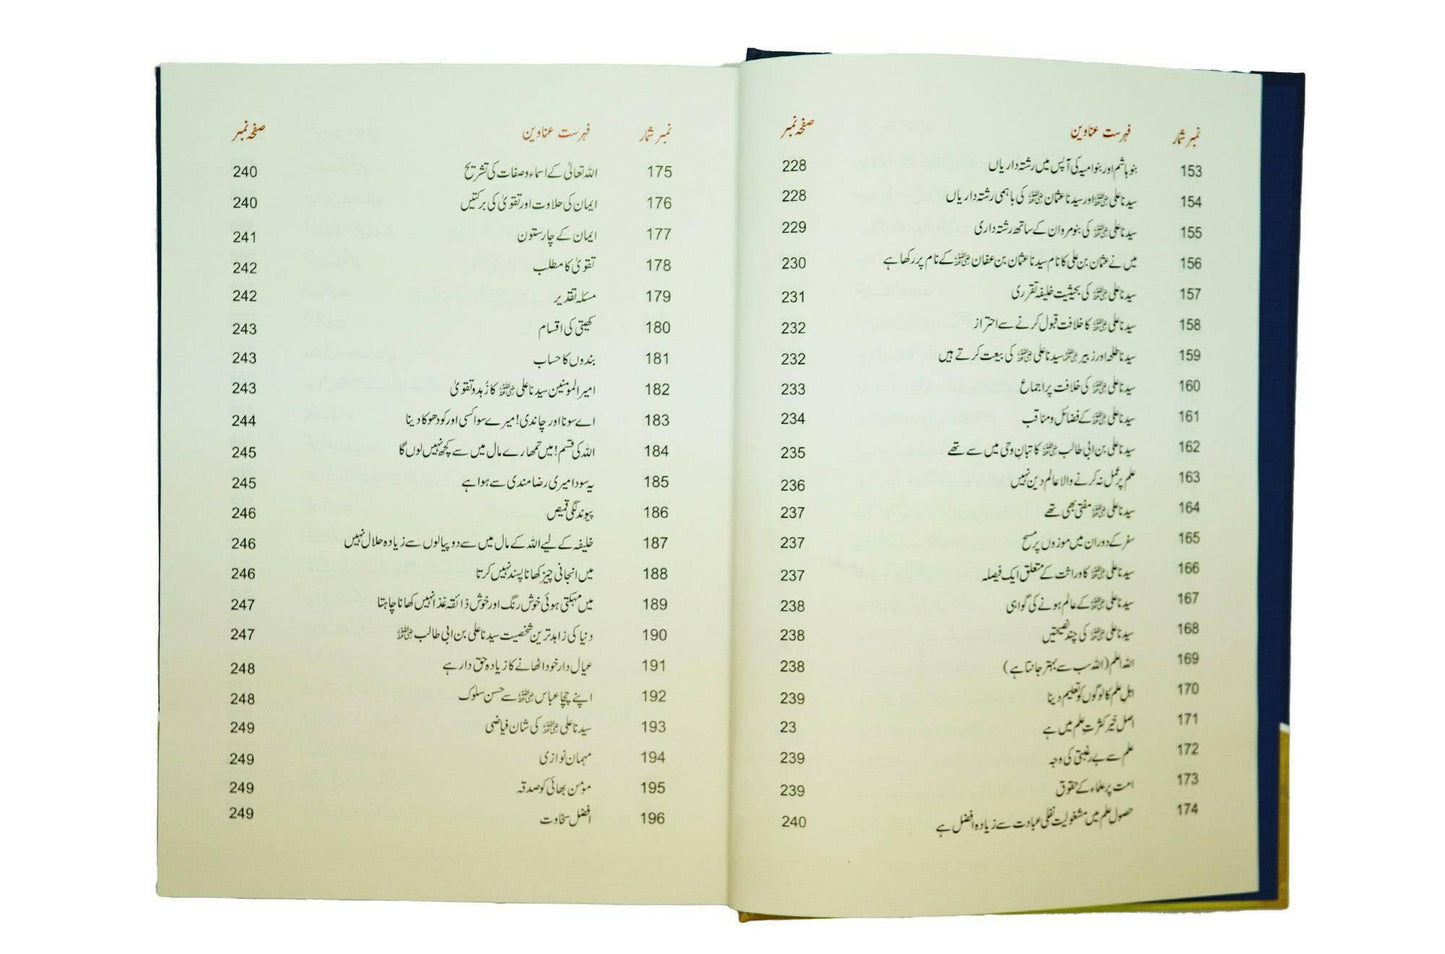 نمبر شمار فہرست عناوین صفحہ نمبر
153 بنو ہاشم اور بنو امیہ کی آپس میں رشتہ داریاں 228
154 سیدنا علی رضی اللہ عنہ اور سیدنا عثمان رضی اللہ عنہ کی باہمی رشتہ داریاں 228
155 سیدنا علی رضی اللہ عنہ کی بنو مروان کے ساتھ رشتہ داری 229
156 میں نے عثمان بن علی کا نام سیدنا عثمان بن عفان رضی اللہ عنہ کے نام پر رکھا ہے 230
157 سیدنا علی رضی اللہ عنہ کی بحیثیت خلیفہ تقرری 231
158 سیدنا علی رضی اللہ عنہ کا خلافت قبول کرنے سے احتراز 232
159 سیدنا طلحہ اور زبیر رضی اللہ عنہما سیدنا علی رضی اللہ عنہ کی بیعت کرتے ہیں 232
160 سیدنا علی رضی اللہ عنہ کی خلافت پر اجماع 233
161 سیدنا علی رضی اللہ عنہ کے فضائل و مناقب 234
162 سیدنا علی بن ابی طالب رضی اللہ عنہ کاتبانِ وحی میں سے تھے 235
163 علم پر عمل نہ کرنے والا عالم دین نہیں 236
164 سیدنا علی رضی اللہ عنہ مفتی بھی تھے 237
165 سفر کے دوران میں موزوں پر مسح 237
166 سیدنا علی رضی اللہ عنہ کا وراثت کے متعلق ایک فیصلہ 237
167 سیدنا علی رضی اللہ عنہ کے عالم ہونے کی گواہی 238
168 سیدنا علی رضی اللہ عنہ کی چند نصیحتیں 238
169 اللہ اعلم (اللہ سب سے بہتر جانتا ہے) 238
170 اہلِ علم کا لوگوں کو تعلیم دینا 239
171 اصل خیر کثرتِ علم میں ہے 23
172 علم سے بے رغبتی کی وجہ 239
173 امت پر علماء کے حقوق 239
174 حصول علم میں مشغولیت نفلی عبادت سے زیادہ افضل ہے 240
نمبر شمار فہرست عناوین صفحہ نمبر
175 اللہ تعالیٰ کے اسماء و صفات کی تشریح 240
176 ایمان کی حلاوت اور تقویٰ کی برکتیں 240
177 ایمان کے چار ستون 241
178 تقویٰ کا مطلب 242
179 مسئلہ تقدیر 242
180 کھیتی کی اقسام 243
181 بندوں کا حساب 243
182 امیر المومنین سیدنا علی رضی اللہ عنہ کا زُہد و تقویٰ 243
183 اے سونا اور چاندی! میرے سوا کسی اور کو دھوکا دینا 244
184 اللہ کی قسم! میں تمھارے مال میں سے کچھ نہیں لوں گا 245
185 یہ سودا میری رضا مندی سے ہوا ہے 245
186 پیوند لگی قمیص 246
187 خلیفہ کے لیے اللہ کے مال میں سے دو پیالوں سے زیادہ حلال نہیں 246
188 میں انجانی چیز کھانا پسند نہیں کرتا 246
189 میں مہکتی ہوئی خوش رنگ اور خوش ذائقہ غذا نہیں کھانا چاہتا 247
190 دنیا کی زاہد ترین شخصیت سیدنا علی بن ابی طالب رضی اللہ عنہ 247
191 عیال دار خود اٹھانے کا زیادہ حق دار ہے 248
192 اپنے چچا عباس رضی اللہ عنہ سے حسن سلوک 248
193 سیدنا علی رضی اللہ عنہ کی شان فیاضی 249
194 مہمان نوازی 249
195 مؤمن بھائی کو صدقہ 249
196 افضل سخاوت 249